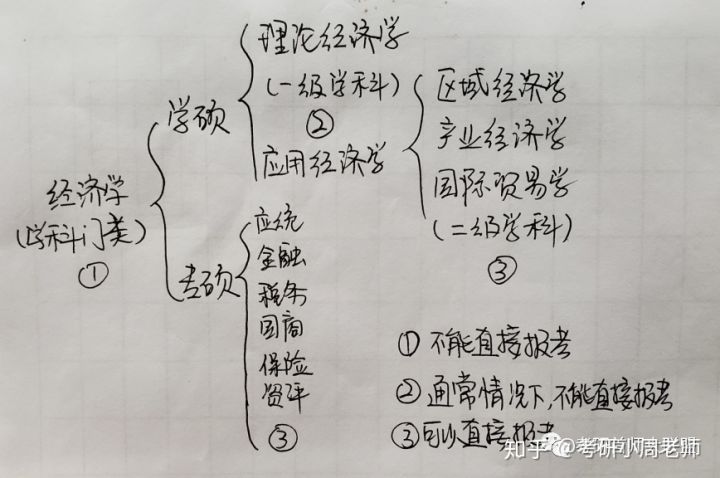 经济学
(学科门类)
①
学硕
理论经济学
(一级学科)
②
应用经济学
区域经济学
产业经济学
国际贸易学
(二级学科)
③
专硕
应统
金融
税务
国商
保险
资评
③
① 不能直接报考
② 通常情况下,不能直接报考
③ 可以直接报考
知乎 @考研小周老师